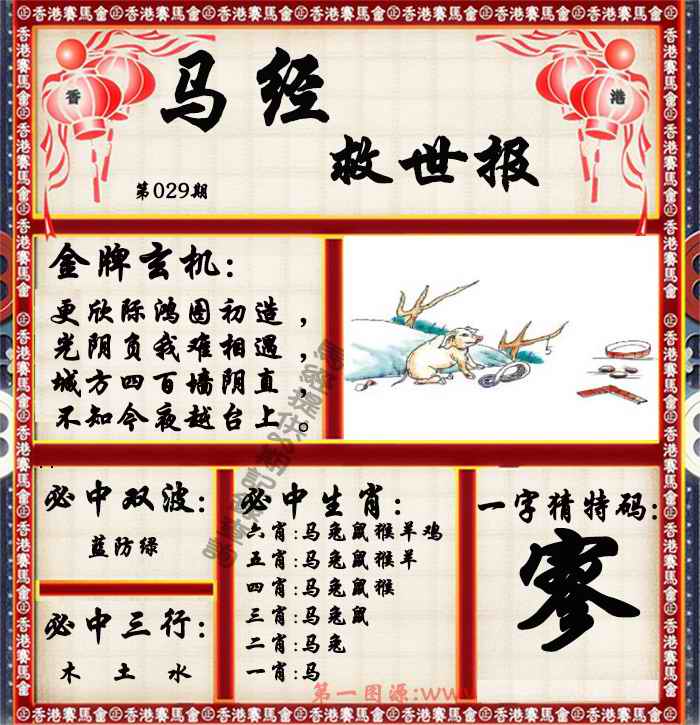 ㊣香港賽馬會㊣香港賽馬會㊣香港賽馬會㊣香港賽馬會㊣香港賽馬會㊣香港賽馬會㊣
香
港
马经
救世报
第029期
金牌玄机:
更欣际鸿图初造，
光阴负我难相遇，
城方四百墙阴直，
不知今夜越台上。
必中双波:
蓝防绿
必中三行:
木 土 水
必中生肖:
六肖:马兔鼠猴羊鸡
五肖:马兔鼠猴羊
四肖:马兔鼠猴
三肖:马兔鼠
二肖:马兔
一肖:马
一字猜特码:
寥
第一图源:www